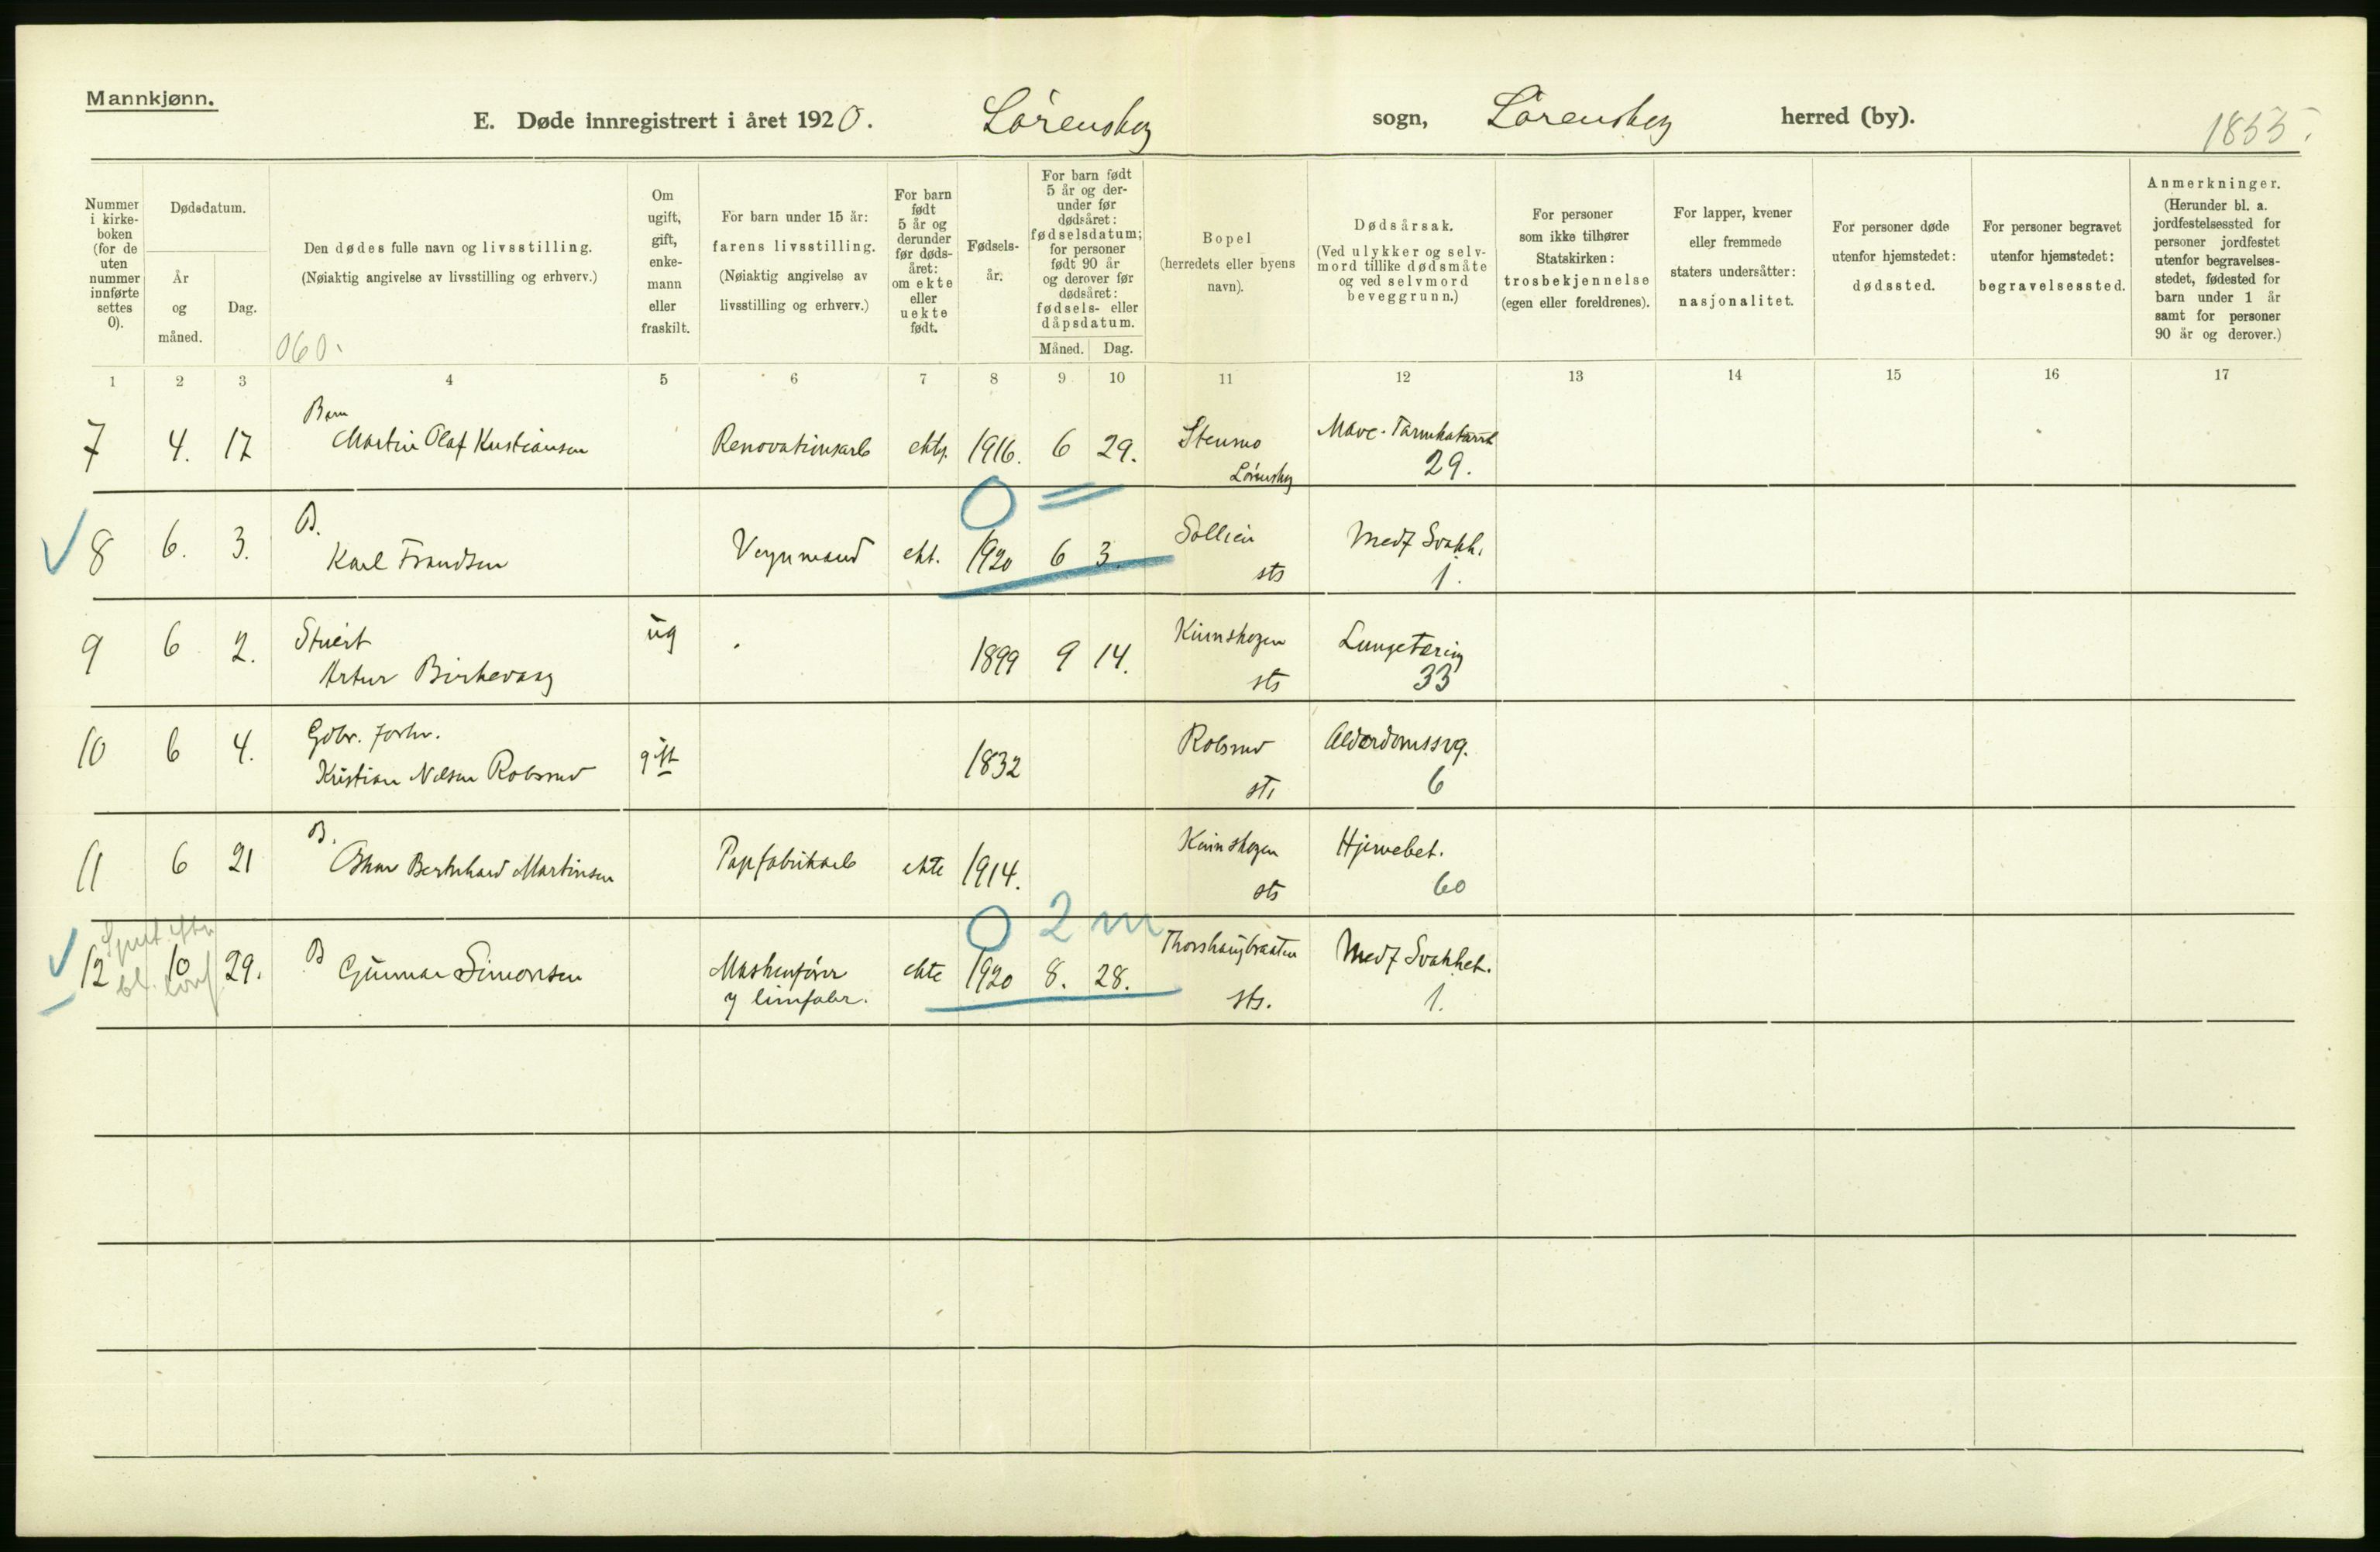 Mannkjønn.
E. Døde innregistrert i året 1920. Lørenskog sogn, Lørenskog herred (by). 1855.
Nummer i kirkeboken (for de uten nummer innførte settes 0).
Dødsdatum.
År og måned.
Dag.
Den dødes fulle navn og livsstilling.
(Nøiaktig angivelse av livsstilling og erhverv.)
060.
Om ugift, gift, enkemann eller fraskilt.
For barn under 15 år: farens livsstilling. (Nøiaktig angivelse av livsstilling og erhverv.)
For barn født 5 år og derunder før dødsåret: om ekte eller uekte født.
Fødselsår.
For barn født 5 år og derunder før dødsåret: fødselsdatum; for personer født 90 år og derover før dødsåret: fødsels- eller dåpsdatum.
Måned. Dag.
Bopel (herredets eller byens navn).
Dødsårsak. (Ved ulykker og selvmord tillike dødsmåte og ved selvmord beveggrunn.)
For personer som ikke tilhører Statskirken: trosbekjennelse (egen eller foreldrenes).
For lapper, kvener eller fremmede staters undersåtter: nasjonalitet.
For personer døde utenfor hjemstedet: dødssted.
For personer begravet utenfor hjemstedet: begravelsessted.
Anmerkninger. (Herunder bl. a. jordfestelsessted for personer jordfestet utenfor begravelsesstedet, fødested for barn under 1 år samt for personer 90 år og derover.)
1 2 3 4 5 6 7 8 9 10 11 12 13 14 15 16 17
Barn
7 4. 17 Martin Olaf Kristiansen Renovationsarb ekte. 1916. 6 29. Stensno Mave-Tarmkatarrh
Lørenskog 29.
0 =
B. Sollien Medf Svakh.
8 6. 3. Karl Frandsen Vognmand ekt. 1920 6 3.
sts 1.
Stuert ug Kiinskogen
9 6 2. Artur Birkevang 1899 9 14. Lungetæring
sts 33
Gdbr. forhv. Robsrud Alderdomssvg.
10 6 4. Kristian Nilsen Robsrud gift 1832
sts 6
B. Kiinskogen Hjernebet.
11 6 21 Oskar Bernhard Martinsen Papfabrikarb ekte 1914.
sts 60
0 2 m
B Thorshaugbraaten Medf Svakhet.
12 10 29. Gunnar Simonsen Maskinfører ekte 1920 8. 28.
y limfabr. sts. 1.